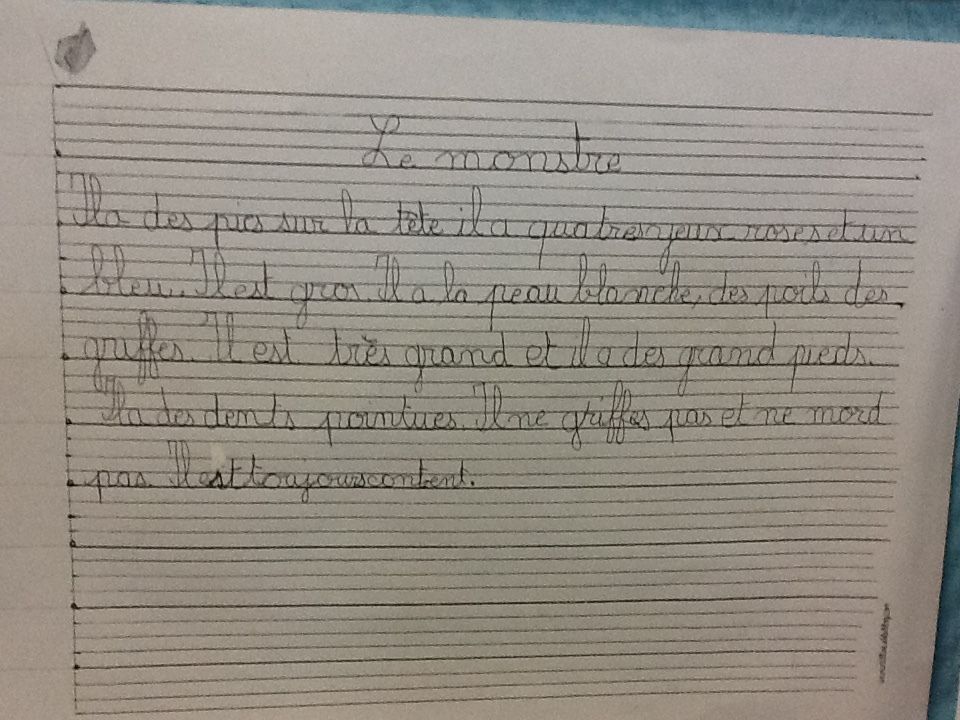 Le monstre
Il a des pics sur la tête il a quatres yeux roses et un
bleu. Il est gros. Il a la peau blanche, des poils des
griffes. Il est très grand et il a des grand pieds.
Il a des dents pointues. Il ne griffes pas et ne mord
pas Il est toujours content.